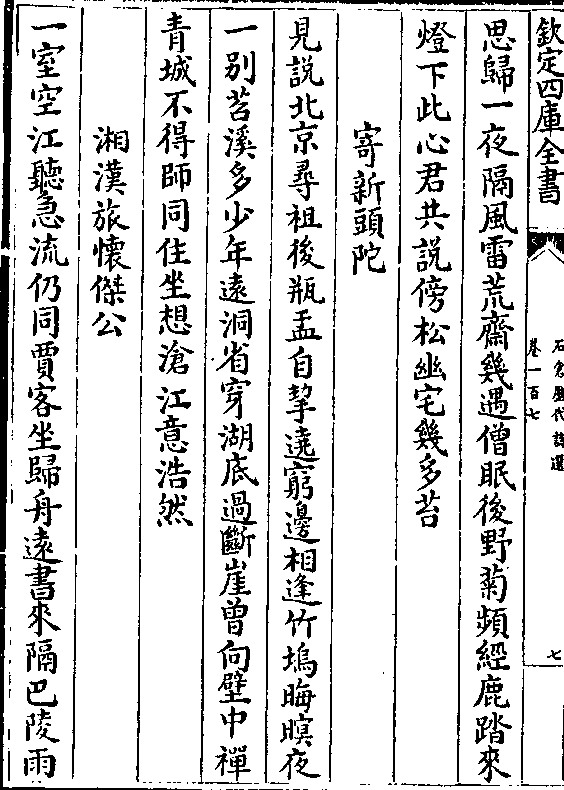 欽定四庫全書
石倉歷代詩選
卷一百七
七
思歸一夜隔風雷荒齋幾遇僧眠後野菊頻經鹿踏來
燈下此心君共說傍松幽宅幾多苔
寄新頭陀
見說北京尋祖後瓶盂自挈遶窮邊相逢竹塢晦暝夜
一别苕溪多少年遠洞省穿湖底過斷崖曾向壁中禪
青城不得師同住坐想滄江意浩然
湘漢旅懷傑公
一室空江聽急流仍同賈客坐歸舟遠書來隔巴陵雨